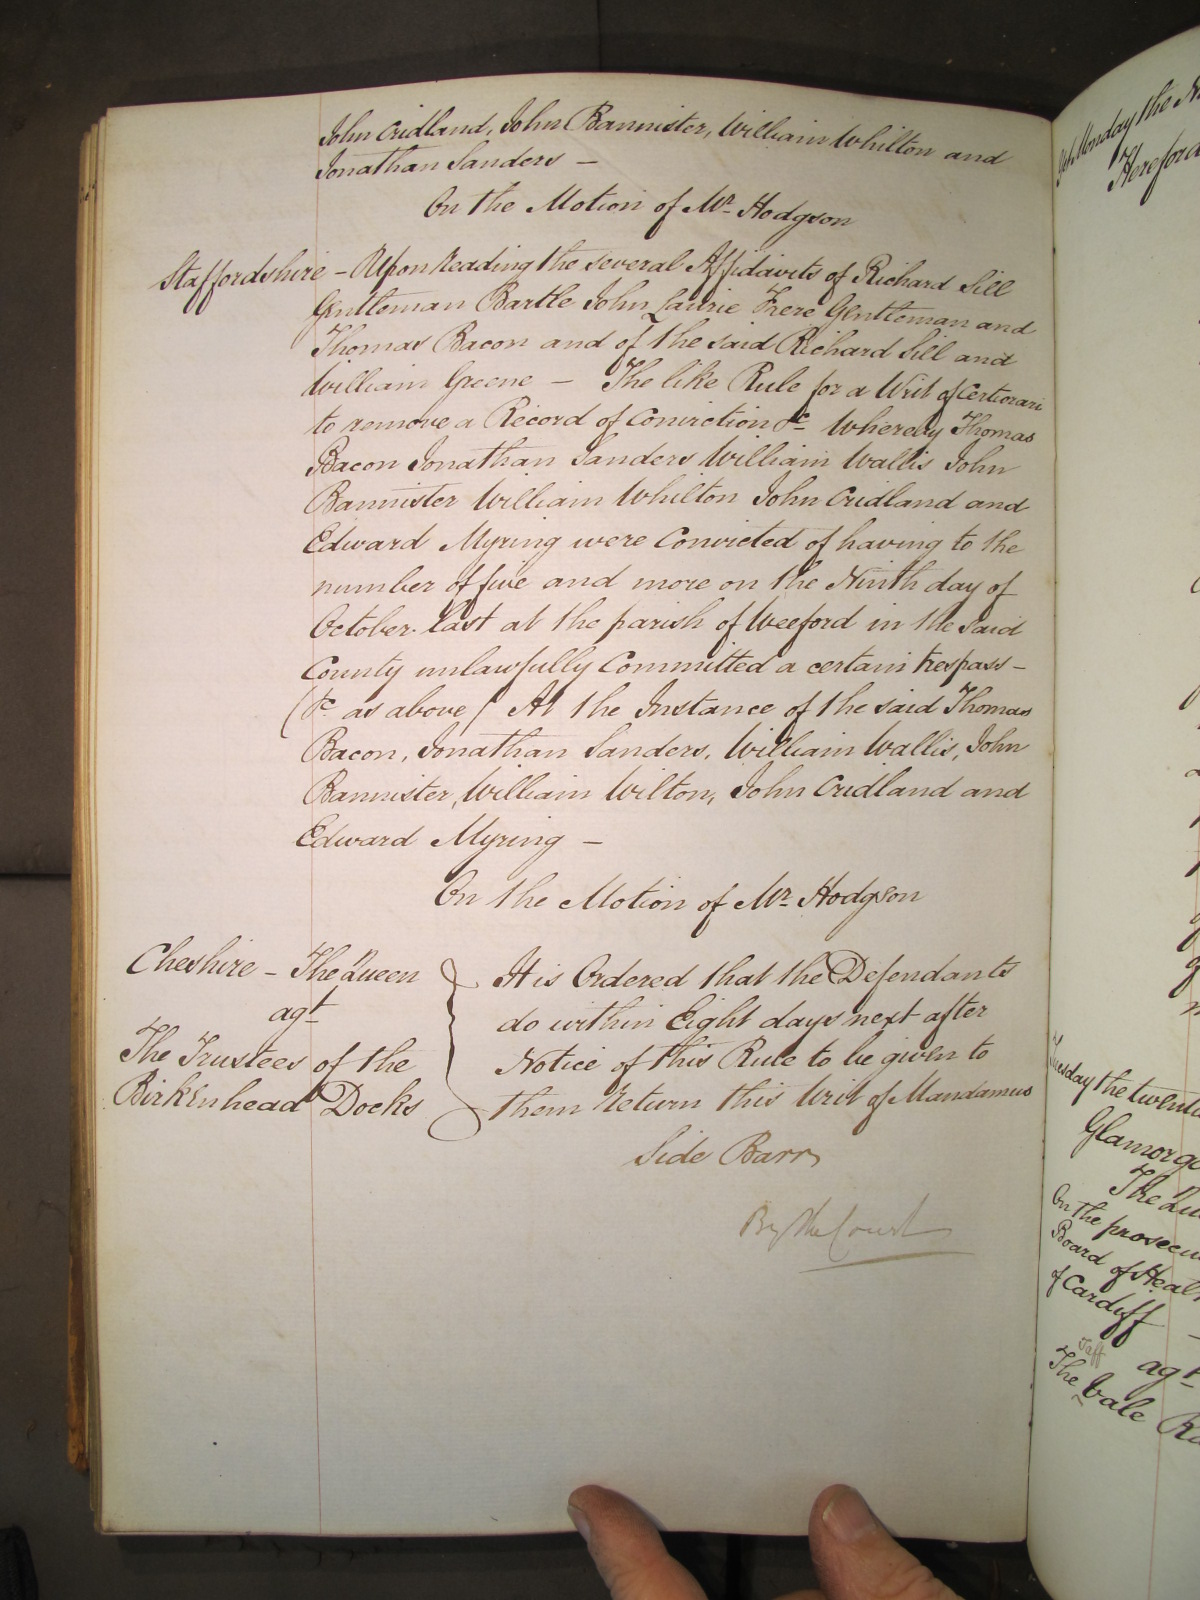 John Cridland, John Bannister, William Whilton and
Jonathan Sanders —
On the Motion of Mr. Hodgson
Staffordshire – Upon reading the several Affidavits of Richard Sill
Gentleman Bartle John Laurie Frere Gentleman and
Thomas Bacon and of the said Richard Sill and
William Greene — The like Rule for a Writ of Certiorari
to remove a Record of Conviction &c Whereby Thomas
Bacon Jonathan Sanders William Wallis John
Bannister William Whilton John Cridland and
Edward Myring were Convicted of having to the
number of five and more on the Ninth day of
October last at the parish of Weeford in the said
County unlawfully Committed a certain trespass –
(&c as above) At the Instance of the said Thomas
Bacon, Jonathan Sanders, William Wallis, John
Bannister, William Wilton, John Cridland and
Edward Myring —
On the Motion of Mr. Hodgson
Cheshire – The Queen
agt
The Trustees of the
Birkenhead Docks
It is Ordered that the Defendants
do within Eight days next after
Notice of this Rule to be given to
them Return this Writ of Mandamus
Side Barr
By the Court
Monday the
Hereford
Tuesday the
The
On the
Board of
of Cardiff –
agt
Taff
The Vale